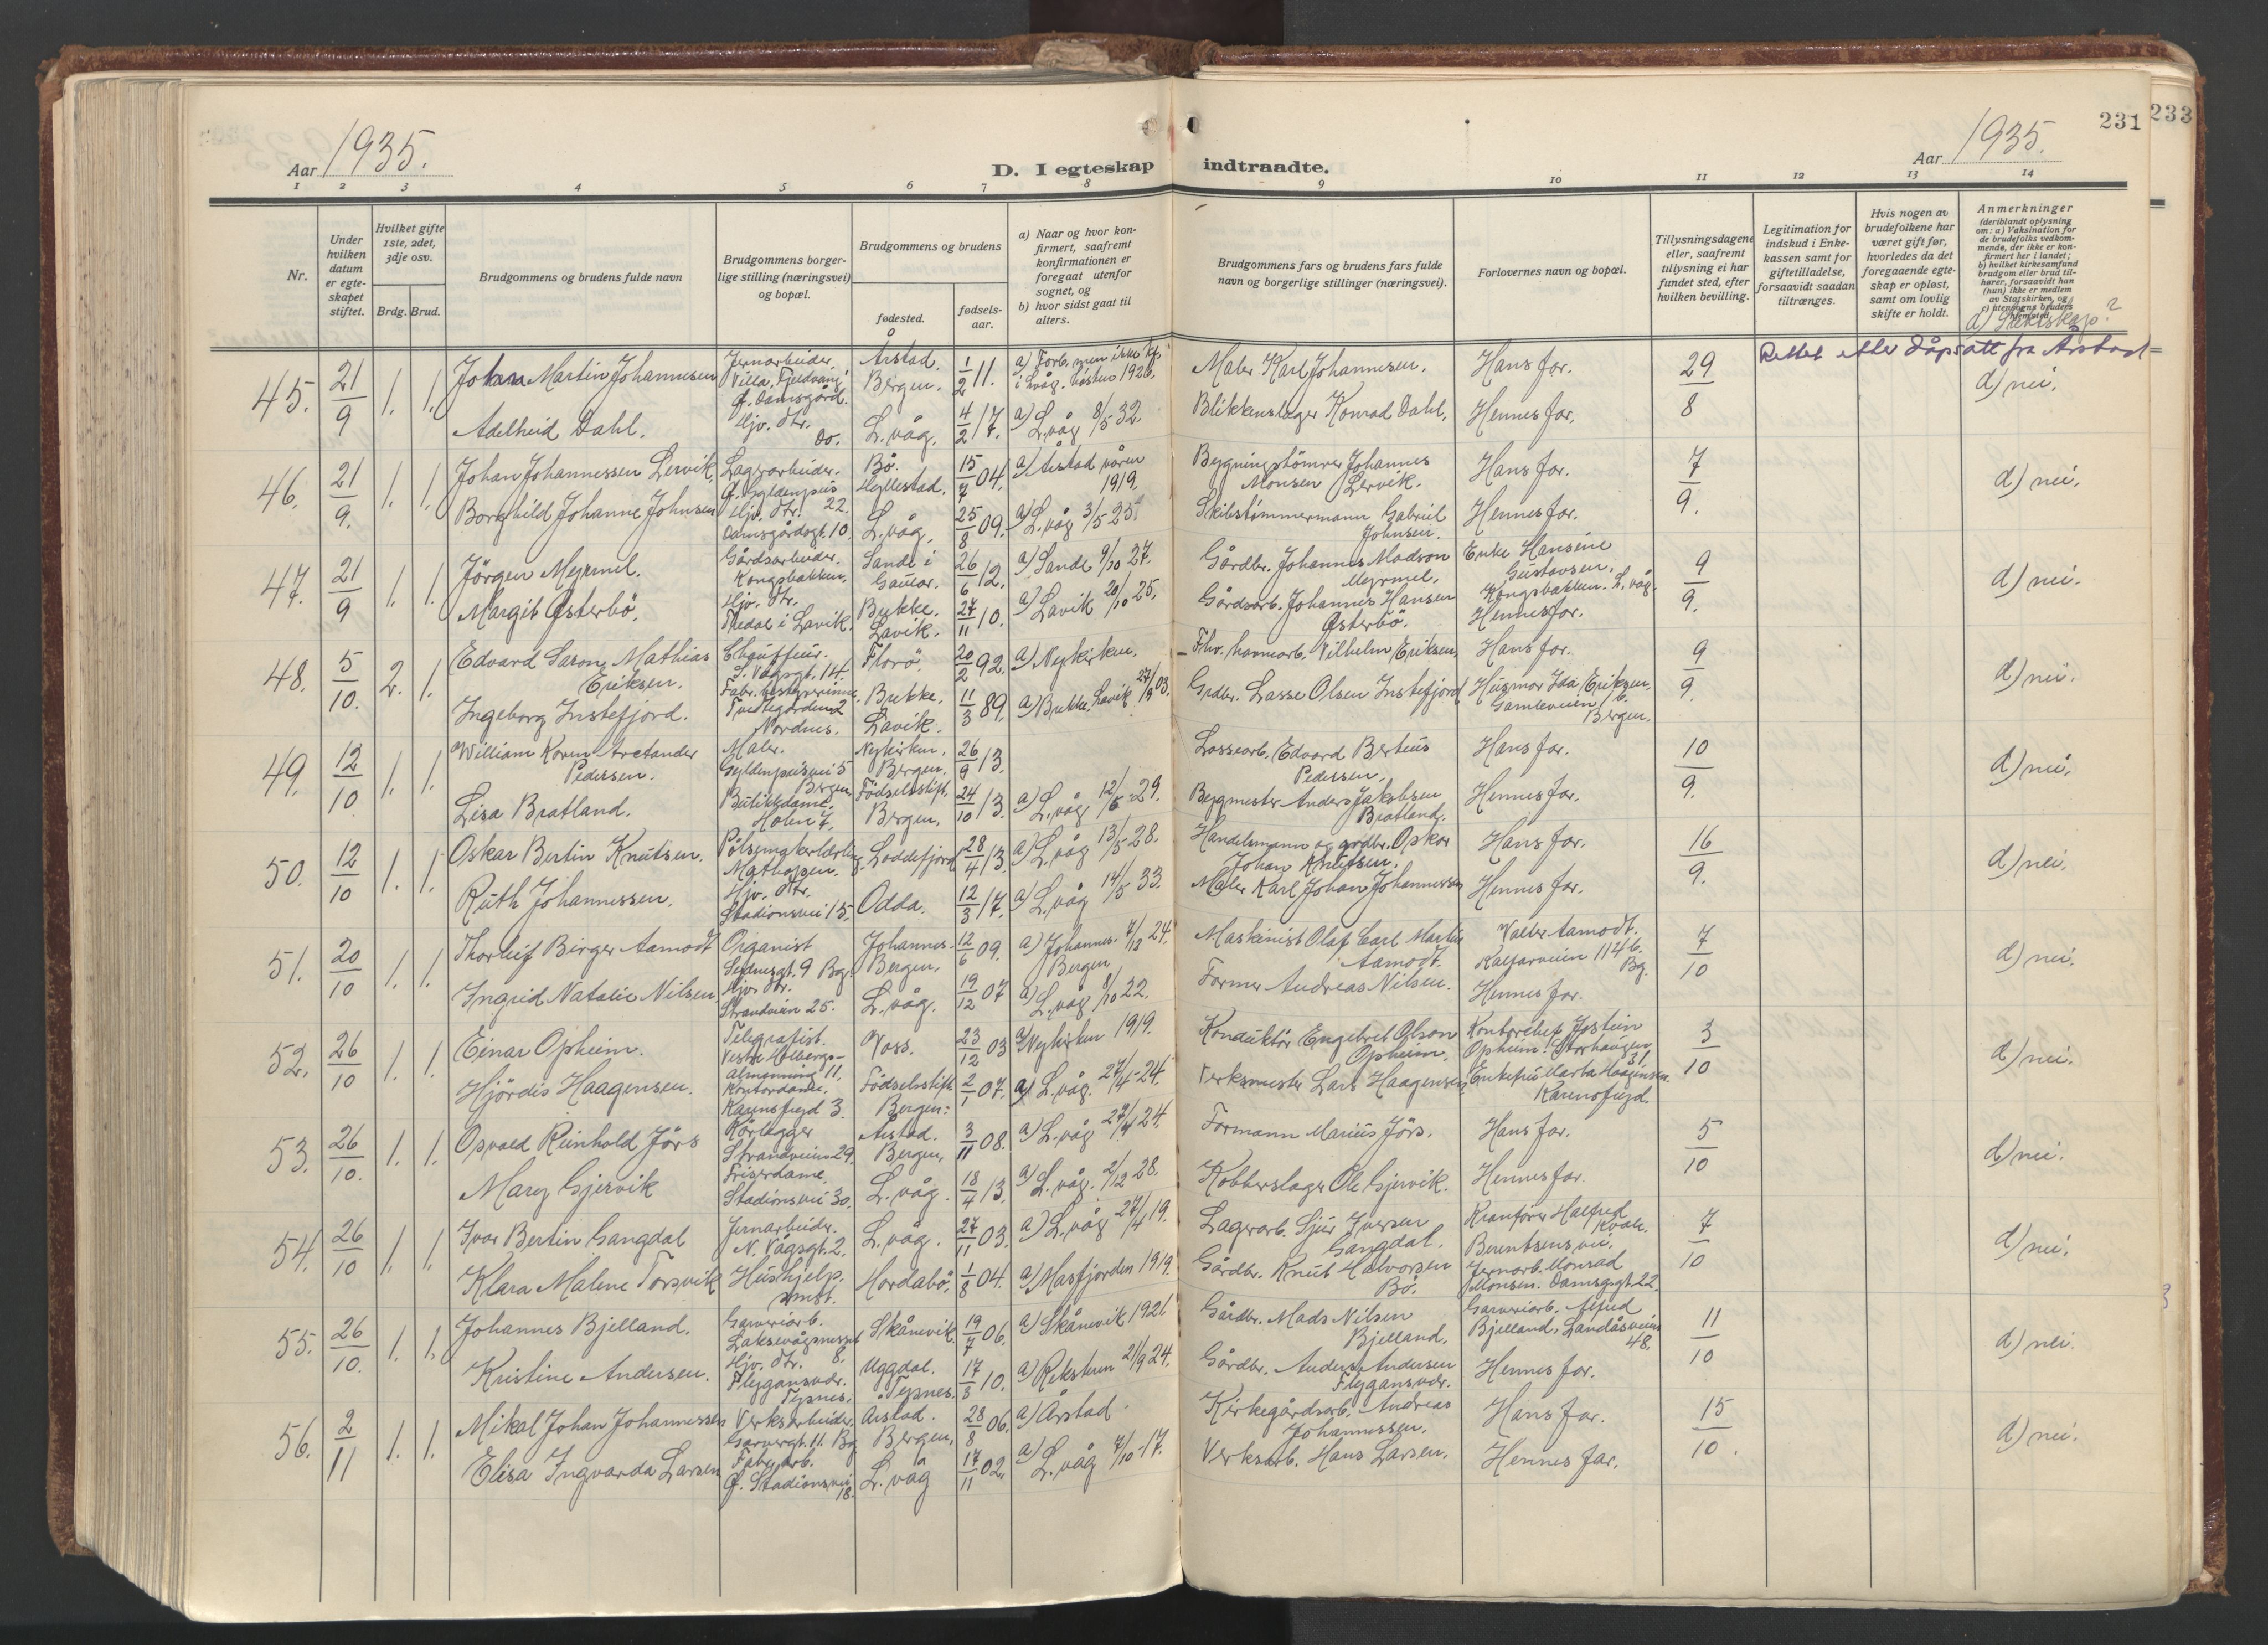 Aar 1935.
D. I egteskap
indtraadte.
Aar 1935.
231
233
1 2 3 4 5 6 7 8 9 10 11 12 13 14
Nr.
Under hvilken datum er egteskapet stiftet.
Hvilket gifte 1ste, 2det, 3dje osv.
Brdg. Brud.
Brudgommens og brudens fulde navn
Brudgommens borgerlige stilling (næringsvei) og bopæl.
Brudgommens og brudens
fødested.
fødselsaar.
a) Naar og hvor konfirmert, saafremt konfirmationen er foregaat utenfor sognet, og
b) hvor sidst gaat til alters.
Brudgommens fars og brudens fars fulde navn og borgerlige stillinger (næringsvei).
Forlovernes navn og bopæl.
Tillysningsdagene eller, saafremt tillysning ei har fundet sted, efter hvilken bevilling.
Legitimation for indskud i Enkekassen samt for giftetilladelse, forsaavidt saadan tiltrænges.
Hvis nogen av brudefolkene har været gift før, hvorledes da det foregaaende egteskap er opløst, samt om lovlig skifte er holdt.
Anmerkninger
(deriblandt oplysning om: a) Vaksination for de brudefolks vedkommende, der ikke er konfirmert her i landet; b) hvilket kirkesamfund brudgom eller brud tilhører, forsaavidt han (hun) ikke er medlem av Statskirken, og c) utenbygds bruders hjemsted.
d) Slektskap?
45. 21/9 1. 1. Johan Martin Johannesen Jernarbeider. Villa Fjeldvang Ø. Damsgård. Årstad. Bergen. 1/2 11. a) Forb. men ikke kf. i L.våg. høsten 1926. Maler Karl Johannesen. Hans far. 29/8 Rettet efter dåpsatt fra Årstad= d) nei.
Adelheid Dahl. Hjv. dtr. Do. L.våg. 4/2 17. a) L.våg 8/5 32. Blikkenslager Konrad Dahl. Hennes far.
46. 21/9. 1. 1. Johan Johannessen Lervik. Lagerarbeider. Ø. Gyldenpris 22. Bø. Hyllestad. 15/7 04. a) Årstad våren 1919. Bygningstømrer Johannes Monsen Lervik. Hans far. 7/9. d) nei.
Borghild Johanne Johnsen Hjv. dtr. Damsgårdsgt. 10. L.våg. 25/8 09. a) L.våg 3/5 25. Skibstømmermann Gabriel Johnsen. Hennes far.
47. 21/9 1. 1. Jörgen Myrmel. Gårdsarbeider. Kongsbakken. Sande i Gaular. 26/6 12. a) Sande 9/10 27. Gårdbr. Johannes Madson Myrmel. Enke Hansine Gustavsen. Kongsbakken. L.våg. 9/9. d) nei.
Margit Østerbö. Hjv. dtr. Tredal i Lavik. Brekke. Lavik. 27/11 10. a) Lavik 20/10 25. Gårdsarb. Johannes Hansen Østerbö. Hennes far.
48. 5/10. 2. 1. Edvard Saron Mathias Eriksen. Chauffeur. S. Vågsgt. 14. Florö. 20/2 92. a) Nykirken. Fhv. havnearb. Vilhelm Eriksen. Hans far. 9/9. d) nei.
Ingeborg Instefjord. Fabr. bestyrerinne. Tvedtegården 2 Nordnes. Brekke. Lavik. 11/3 89. a) Brekke, Lavik 27/9 03. Grdbr. Lasse Olsen Instefjord Husmor Ida Eriksen. Gamleveien 6. Bergen.
49. 12/10. 1. 1. William Koren Arctander Pedersen. Maler. Gyldenprisvei 5 Bergen Nykirken. Bergen. 26/9 13. Lossearb. Edvard Berteus Pedersen. Hans far. 10/9. d) nei.
Lisa Bratland. Butikkdame. Holen 7. Födselsstift. Bergen. 24/10 13. a) L.våg 12/5 29. Bygmester Anders Jakobsen Bratland. Hennes far.
50. 12/10 1. 1. Oskar Bertin Knutsen. Pölsemakerlærling. Mathopen. Loddefjord 28/4 13. a) L.våg 13/5 28. Handelsmann og grdbr. Oskar Johan Knutsen. Hans far. 16/9. d) nei.
Ruth Johannessen. Hjv. dtr. Stadionsvei 15. Odda. 12/3 17. a) L.våg 14/5 33. Maler Karl Johan Johannessen Hennes far.
51. 20/10 1. 1. Thorleif Birger Aamodt Organist Sydnesgt. 9 Bg. Johannes. Bergen. 12/6 09. a) Johannes. Bergen 7/12 24. Maskinist Olaf Carl Martin Aamodt. Valter Aamodt. Kalfarveien 114 b. Bg. 7/10 d) nei.
Ingrid Natalie Nilsen. Hjv. dtr. Strandveien 25. L.våg. 19/12 07 a) L.våg 8/10 22. Former Andreas Nilsen. Hennes far.
52. 26/10 1. 1. Einar Opheim. Telegrafist. Vestre Holbergsalmenning 11. Voss. 23/12 03 a) Nykirken 1919. Konduktör Engebret Olson Opheim. Kontorchef Jostein Opheim. Storhaugen 31. 3/10 d) nei.
Hjördis Haagensen. Kontordame. Karensfryd 3. Födselsstift Bergen: 2/1 07. a) L.våg. 27/4 24. Verksmester Lars Haagensen. Enkefru Marta Haagensen. Karensfryd.
53. 26/10. 1. 1. Osvald Reinhold Jörs Rörlegger Strandveien 29. Årstad. Bergen. 3/11 08. a) L.våg 27/4 24. Formann Marius Jörs. Hans far. 5/10 d) nei.
Mary Gjervik Friserdame. Stadionsvei 30. L.våg. 18/4 13. a) L.våg. 2/12 28. Kobberslager Ole Gjervik. Hennes far.
54. 26/10 1. 1. Ivar Bertin Gangdal Jernarbeider. N. Vågsgt. 2. L.våg. 27/11 03. a) L.våg 27/4 19. Lagerarb. Sjur Iversen Gangdal. Kranförer Halfred Kvale. Berentsens vei. 7/10 d) nei.
Klara Malene Torsvik Hushjelp. smst. Hordabö. 1/8 04. a) Masfjorden 1919. Gårdbr. Knut Halvorsen Bö. Jernarb. Konrad Monsen. Damsg.gt 22.
55. 26/10. 1. 1. Johannes Bjelland. Garveriarb. Laksevågsneset 8. Skånevik. 19/7 06. a) Skånevik 1921 Gårdbr. Mads Nilsen Bjelland. Garveriarb. Alfred Bjelland, Landåsveien 48. 11/10 d) nei.
Kristine Andersen. Hjv. dtr. Flygansvær. Tysnes. Uggdal. Tysnes. 17/3 10. a) Reksteren 21/9 24. Gårdbr. Anders Andersen Flygansvær. Hennes far.
56. 2/11 1. 1. Mikal Johan Johannessen Verksarbeider. Garvergt. 11. Bg Årstad. Bergen. 28/8 06. a) Årstad. Kirkegårdsarb. Andreas Johannessen. Hans far. 15/10. d) nei.
Elisa Ingvarda Larsen Fabr. arb. Ø. Stadionsvei 18. L.våg 17/11 02. a) L.våg 7/10 17. Verksarb. Hans Larsen. Hennes far.